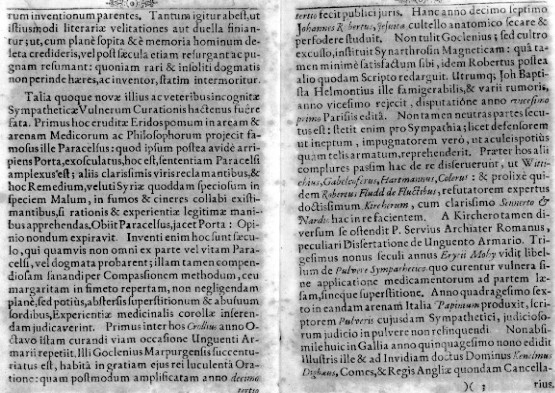 rum inventionum parentes. Tantum igitur abest, ut
istiusmodi literariæ velitationes aut duella finian-
tur; ut, cum planè sopita & è memoria hominum de-
leta credideris, vel post sæcula etiam resurgant ac pu-
gnam resumant: quoniam rari & insoliti dogmatis
non perinde hæres, ac inventor, statim intermoritur.
Talia quoque novæ illius ac veteribus incognitæ
Sympatheticæ Vulnerum Curationis hactenus fuêre
fata. Primus hoc eruditæ Eridos pomum in aream &
arenam Medicorum ac Philosophorum projecit fa-
mosus ille Paracelsus: quod ipsum postea avidè arri-
piens Porta, exosculatus, hoc est, sententiam Paracelsi
amplexus est; aliis clarissimis viris reclamantibus, &
hoc Remedium, veluti Syriæ quoddam speciosum in
speciem Malum, in fumos & cineres collabi existi-
mantibus, si rationis & experientiæ legitimæ mani-
bus apprehendas. Obiit Paracelsus, jacet Porta: Opi-
nio nondum expiravit. Inventi enim hoc sunt sæcu-
lo, qui quamvis non omni ex parte vel vitam Para-
celsi, vel dogmata probarent; illam tamen compen-
diosam sanandi per Compassionem methodum, ceu
margaritam in fimeto repertam, non negligendam
planè, sed potiùs, abstersis superstitionum & abusuum
sordibus, Experientiæ medicinalis corollæ inseren-
dam judicaverint. Primus inter hos Crollius anno O-
ctavo istam curandi viam occasione Unguenti Ar-
marii repetiit. Illi Goclenius Marpurgensis succentu-
riatus est, habitâ in gratiam ejus rei luculentâ Ora-
tione: quam postmodum amplificatam anno decimo
tertio
tertio fecit publici juris. Hanc anno decimo septimo
Johannes Robertus, Jesuita cultello anatomico secare &
perfodere studuit. Non tulit Goclenius; sed cultro
excusso, instituit Synarthrosin Magneticam: quâ ta-
men minimè satisfactum sibi, idem Robertus postea
alio quodam Scripto redarguit. Utrumq; Joh Bapti-
sta Helmontius ille famigerabilis, & varii rumoris,
anno vicesimo rejecit, disputatione anno vicesimo
primo Parisiis editâ. Non tamen neutras partes secu-
tus est: stetit enim pro Sympathia; licet defensorem
ut ineptum, impugnatorem verò, ut aculeis potiùs
quam telis armatum, reprehenderit. Præter hos alii
complures passim hac de re disseruerunt, ut Witti-
chius, Gabelchoferus, Hartmannus, Celerus: & prolixè qui-
dem Robertus Fludd de Fluctibus, refutatorem expertus
doctissimum Kircherum, cum clarissimo Sennerto &
Nardio hac in re facientem. A Kirchero tamen di-
versum se ostendit P. Servius Archiater Romanus,
peculiari Dissertatione de Unguento Armario. Tri-
gesimus nonus seculi annus Eryci Mohy vidit libel-
lum de Pulvere Sympathetico quo curentur vulnera si-
ne applicatione medicamentorum ad partem læ-
sam, sineque superstitione. Anno quadragesimo sex-
to in eandem arenam Italia Papinium produxit, scri-
ptorem Pulveris cujusdam Sympathetici, judicioso-
rum judicio in pulvere non relinquendi. Non absi-
mile huic in Gallia anno quinquagesimo nono edidit
Illustris ille & ad Invidiam doctus Dominus Kenelmus
Digbæus, Comes, & Regis Angliæ quondam Cancella-
)( 3 rius.